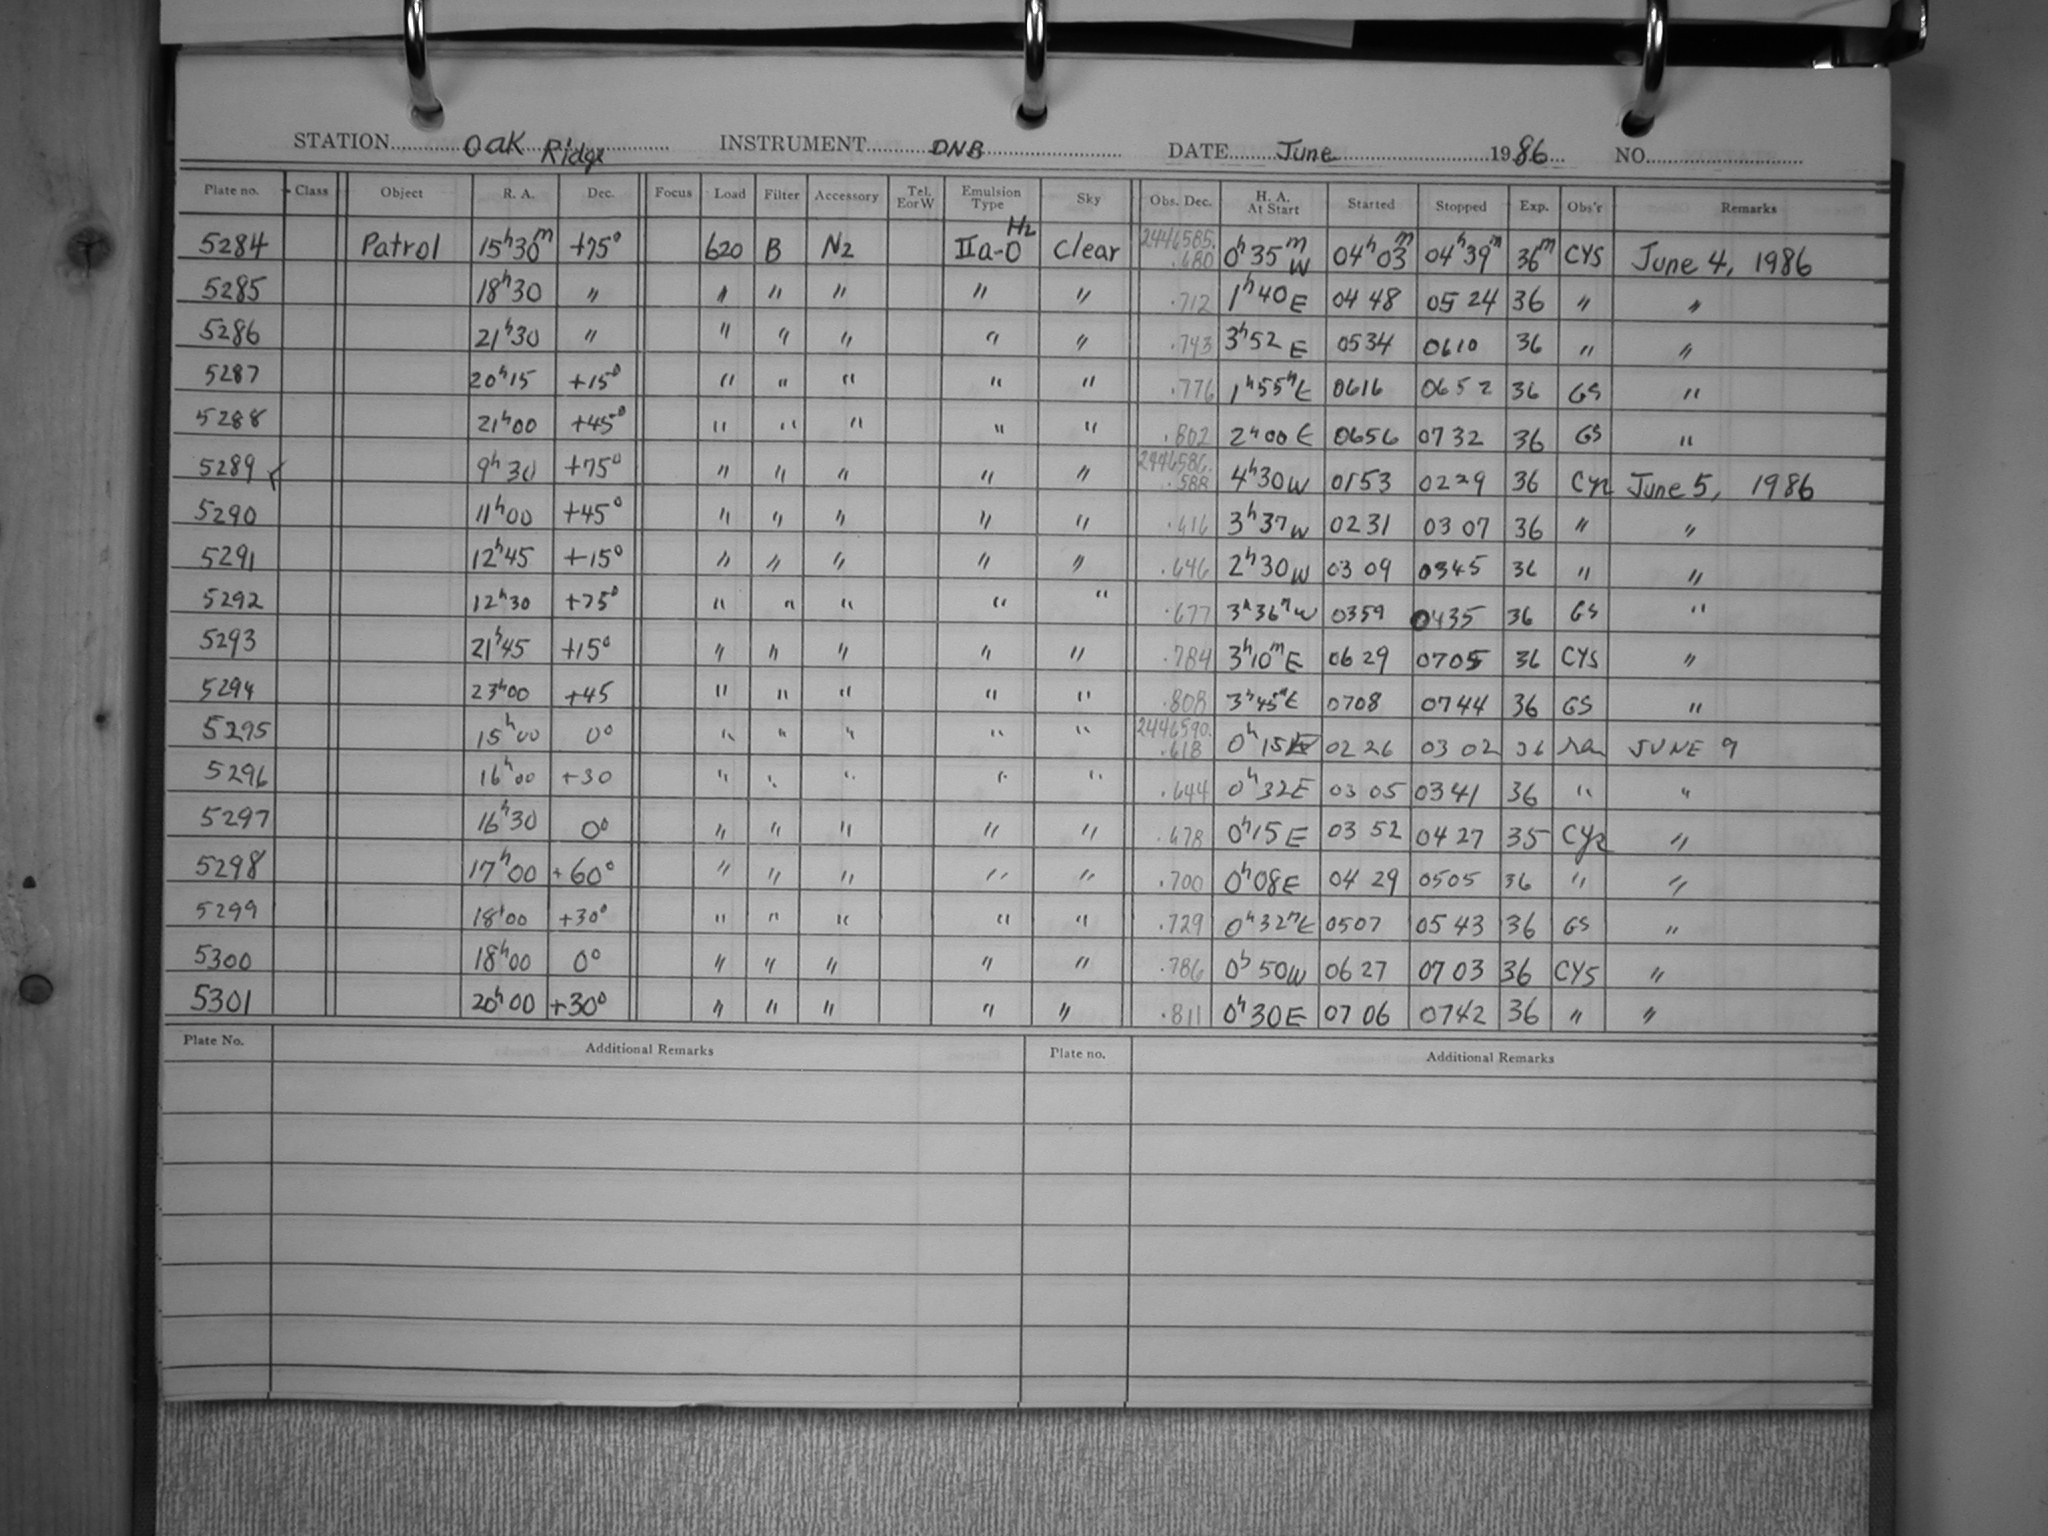 STATION Oak Ridge INSTRUMENT DNB DATE June 1986 NO.
Plate no. Class Object R. A. Dec. Focus Load Filter Accessory Tel. E or W Emulsion Type Sky Obs. Dec. H. A. At Start Started Stopped Exp. Obs'r Remarks
5284 Patrol 15h30m +75° 620 B N2 IIa-O H2 Clear 2446585. .680 0h35m W 04h03m 04h39m 36m CYS June 4, 1986
5285 18h30 〃 〃 〃 〃 〃 〃 .712 1h40 E 04 48 05 24 36 〃 〃
5286 21h30 〃 〃 〃 〃 〃 〃 .743 3h52 E 0534 0610 36 〃 〃
5287 20h15 +15° 〃 〃 〃 〃 〃 .776 1h55m E 0616 0652 36 GS 〃
5288 21h00 +45° 〃 〃 〃 〃 〃 .802 2h00 E 0656 0732 36 GS 〃
5289 9h30 +75° 〃 〃 〃 〃 〃 2446586. .588 4h30 W 0153 0229 36 June 5, 1986
5290 11h00 +45° 〃 〃 〃 〃 〃 .616 3h37 W 0231 03 07 36 〃 〃
5291 12h45 +15° 〃 〃 〃 〃 〃 .646 2h30 W 03 09 0345 36 〃 〃
5292 12h30 +75° 〃 〃 〃 〃 〃 .677 3h36m W 0359 0435 36 GS 〃
5293 21h45 +15° 〃 〃 〃 〃 〃 .784 3h10m E 06 29 0705 36 CYS 〃
5294 23h00 +45 〃 〃 〃 〃 〃 .808 3h45m E 0708 0744 36 GS 〃
5295 15h00 0° 〃 〃 〃 〃 〃 2446590. .618 0h15 02 26 03 02 36 JUNE 9
5296 16h00 +30 〃 〃 〃 〃 〃 .644 0h32 E 03 05 0341 36 〃 〃
5297 16h30 0° 〃 〃 〃 〃 〃 .678 0h15 E 03 52 04 27 35 〃
5298 17h00 +60° 〃 〃 〃 〃 〃 .700 0h08 E 04 29 0505 36 〃 〃
5299 18h00 +30° 〃 〃 〃 〃 〃 .729 0h32m E 0507 05 43 36 GS 〃
5300 18h00 0° 〃 〃 〃 〃 〃 .786 0h50 W 06 27 07 03 36 CYS 〃
5301 20h00 +30° 〃 〃 〃 〃 〃 .811 0h30 E 07 06 0742 36 〃 〃
Plate No. Additional Remarks Plate no. Additional Remarks